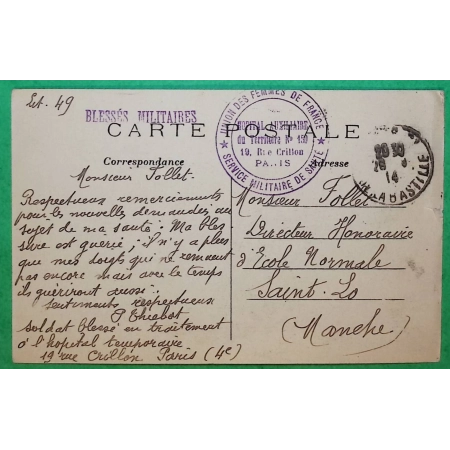 Lit. 49
BLESSÉS MILITAIRES
CARTE POSTALE
Correspondance
Adresse
UNION DES FEMMES DE FRANCE
HOPITAL AUXILIAIRE
du Territoire N° 150
19, Rue Crillon
PARIS
SERVICE MILITAIRE DE SANTÉ
14
LA BASTILLE
Monsieur Follet
Respectueux remerciements
pour les nouvelles demandées au
sujet de ma santé : Ma bles
sure est guérie ; il n'y a plus
que mes doigts qui ne remuent
pas encore mais avec le temps
ils guériront aussi.
Sentiments respectueux
P Thiabot
soldat blessé en traitement
à l'hopital temporaire
19 rue Crillon Paris (4e)
Monsieur Follet
Directeur Honoraire
d'Ecole Normale
Saint-Lo
(Manche)